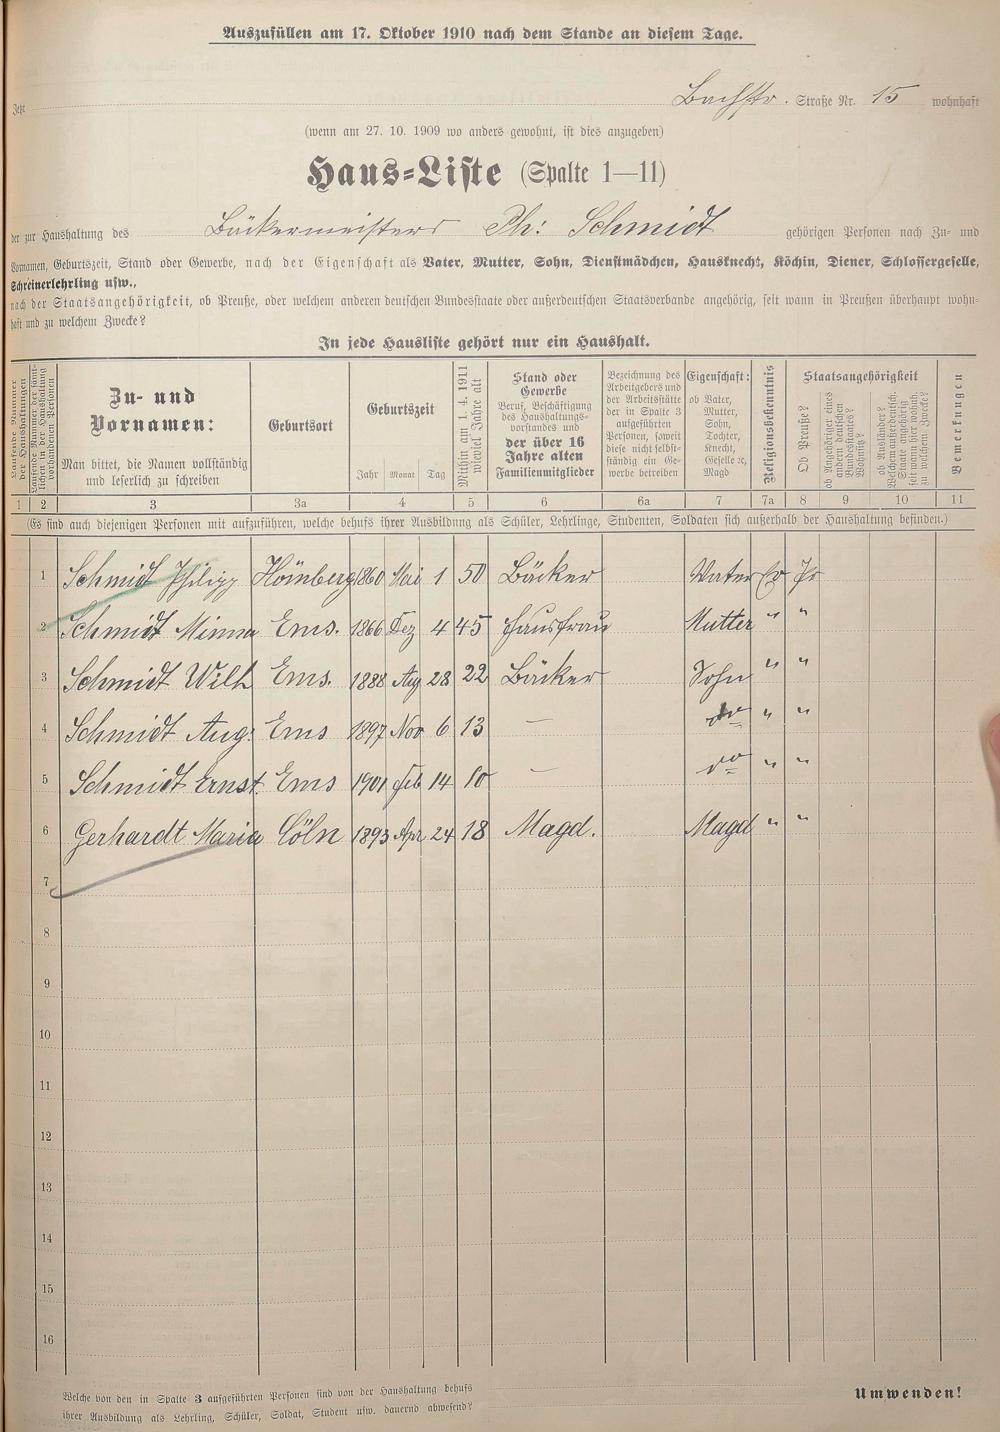 Auszufüllen am 17. Oktober 1910 nach dem Stande an diesem Tage.
Jetzt Bachstr. Straße Nr. 15 wohnhaft
(wenn am 27. 10. 1909 wo anders gewohnt, ist dies anzugeben)
Haus-Liste (Spalte 1—11)
der zur Haushaltung des Bäckermeisters Ph: Schmidt gehörigen Personen nach Zu- und
Vornamen, Geburtszeit, Stand oder Gewerbe, nach der Eigenschaft als Vater, Mutter, Sohn, Dienstmädchen, Hausknecht, Köchin, Diener, Schlossergeselle,
Schreinerlehrling usw.,
nach der Staatsangehörigkeit, ob Preuße, oder welchem anderen deutschen Bundesstaate oder außerdeutschen Staatsverbande angehörig, seit wann in Preußen überhaupt wohn-
haft und zu welchem Zwecke?
In jede Hausliste gehört nur ein Haushalt.
Laufende Nummer der Haushaltungen
Laufende Nummer der sämtlichen in der Haushaltung vorhandenen Personen
Zu- und
Vornamen:
Man bittet, die Namen vollständig
und leserlich zu schreiben
Geburtsort
Geburtszeit
Jahr Monat Tag
Mithin am 1. 4. 1911
wieviel Jahre alt
Stand oder
Gewerbe
Beruf, Beschäftigung
des Haushaltungs-
vorstandes und
der über 16
Jahre alten
Familienmitglieder
Bezeichnung des
Arbeitgebers und
der Arbeitsstätte
der in Spalte 3
aufgeführten
Personen, soweit
diese nicht selbst-
ständig ein Ge-
werbe betreiben
Eigenschaft:
ob Vater,
Mutter,
Sohn,
Tochter,
Knecht,
Geselle ꝛc,
Magd
Religionsbekenntnis
Staatsangehörigkeit
Ob Preuße?
ob Angehöriger eines
andern deutschen
Bundesstaates?
Wohnsitz?
ob Ausländer?
Welchem außerdeutsch.
Staate angehörig
seit wann hier wohnh.
zu welchem Zwecke?
Bemerkungen
1 2 3 3a 4 5 6 6a 7 7a 8 9 10 11
(Es sind auch diejenigen Personen mit aufzuführen, welche behufs ihrer Ausbildung als Schüler, Lehrlinge, Studenten, Soldaten sich außerhalb der Haushaltung befinden.)
1 Schmidt Philipp 1860 Mai 1 50 Bäcker Vater Ev Pr
2 Schmidt Minna Ems. 1866 Dez 4 45 Hausfrau Mutter " "
3 Schmidt Wilh Ems. 1888 Aug 28 22 Bäcker Sohn " "
4 Schmidt Aug: Ems 1897 Nov 6 13 — do " "
5 Schmidt Ernst. Ems 1901 Feb 14 10 — do " "
6 Gerhardt Maria Cöln 1893 Apr 24 18 Magd. Magd " "
7
8
9
10
11
12
13
14
15
16
Welche von den in Spalte 3 aufgeführten Personen sind von der Haushaltung behufs
ihrer Ausbildung als Lehrling, Schüler, Soldat, Student usw. dauernd abwesend?
Umwenden!